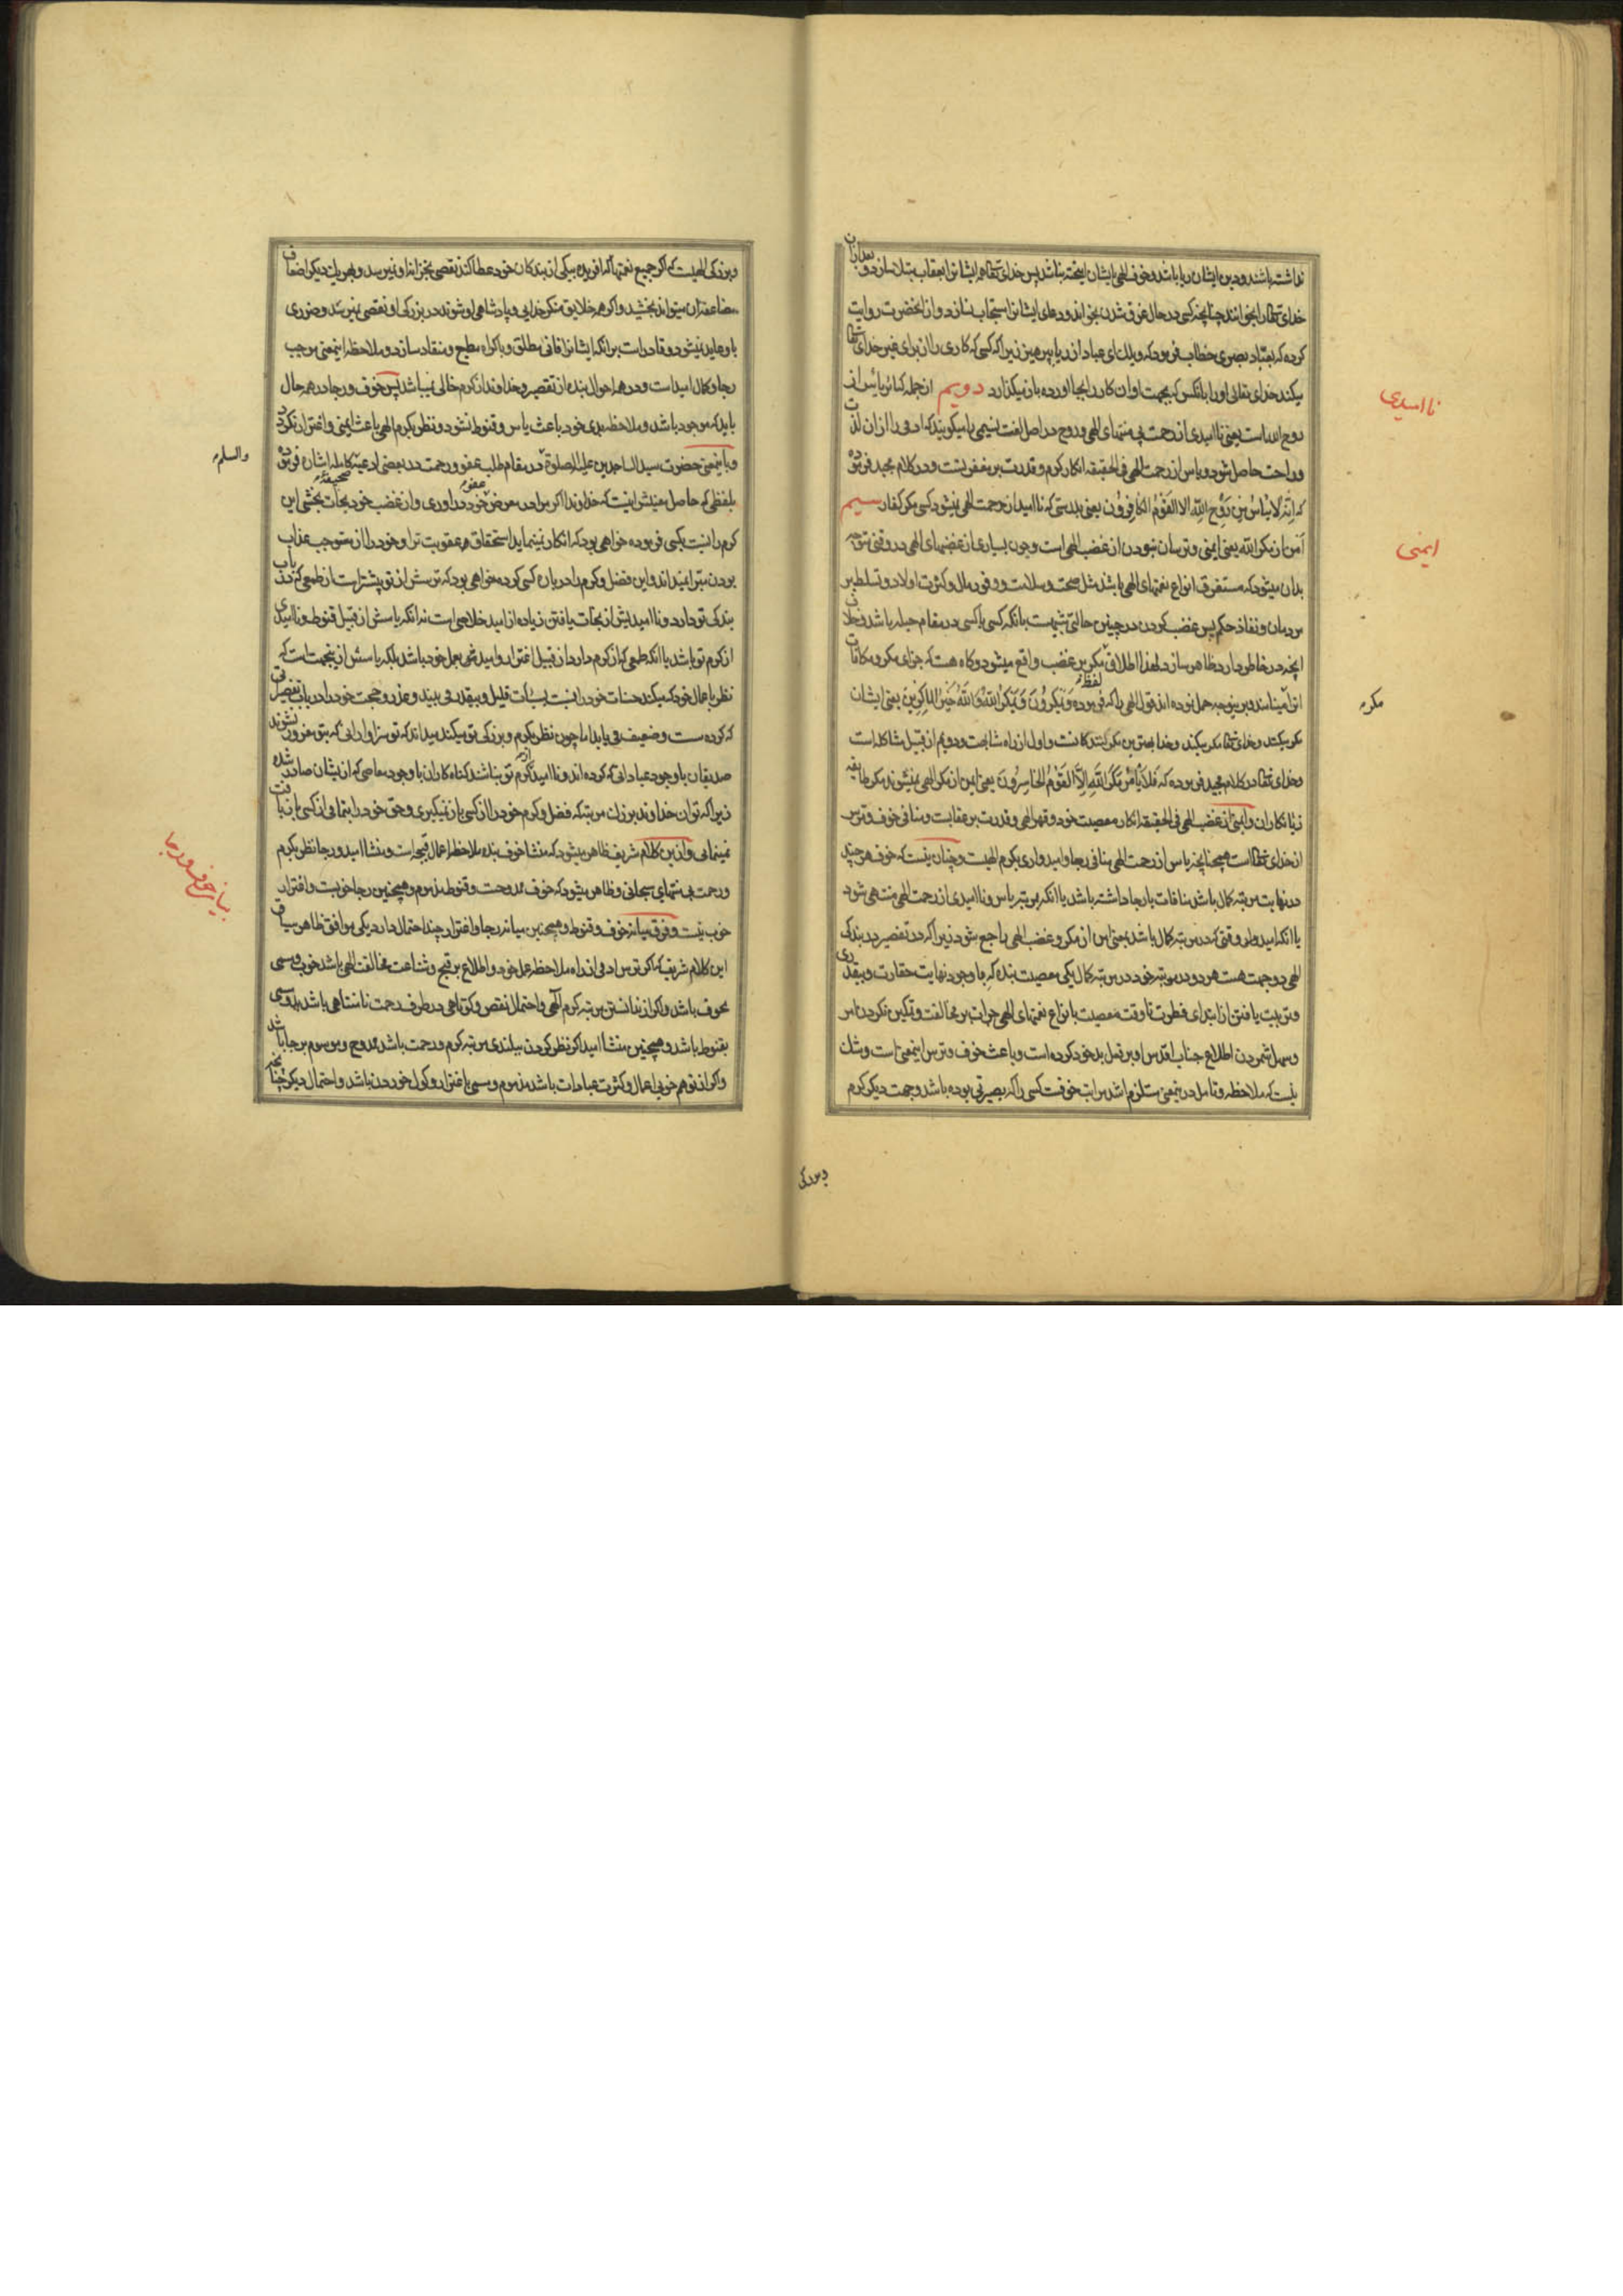 نداشته باشند و دین ایشان ریا باشد و خوف الهی بایشان امیخته نباشد پس خدای تعالی همه ایشانرا بعقاب مبتلا سازد و بعد ازان
خدای تعالی را بخوانند چنانچه کسی در حال غرق شدن بخواند و دعای ایشانرا مستجاب نسازد و از انحضرت روایت
کرده که بعباد بصری خطاب فرمود که ویلك ای عباد از ریا بپرهیز زیرا که کسی که کاری را از برای غیر خدای تعالی
میکند خدای تعالی او را بانکس که بجهت او ان کار را بجا اورده بازمیگذارد دویم از جمله کبائر یاس از
روح الله است یعنی ناامیدی از رحمت بی منتهای الهی و روح در اصل لغت نسیمی را میگویند که ادمی را از ان لذت
و راحت حاصل شود و یاس از رحمت الهی فی الحقیقه انکار کرم و قدرت بر مغفرتست و در کلام مجید فرموده
که اِنَّهُ لَا یَیْاَسُ مِنْ رَوْحِ اللهِ اِلَّا القَوْمُ الکَافِرُونَ یعنی بدرستی که ناامید از رحمت الهی نمیشود کسی مگر کفار سیم
اَمن از مکر الله یعنی ایمنی و ترسان نبودن از غضب الهی است و چون بسیاری از غضبهای الهی در وقتی متوجه
بدان میشود که مستغرق انواع نعمتهای الهی باشد مثل صحت و سلامت و وفور مال و کثرت اولاد و تسلط بر
مردمان و نفاذ حکم پس غضب کردن در چنین حالتی شبیهست بانکه کسی با کسی در مقام حیله باشد و خلاف
انچه در خاطر دارد ظاهر سازد لهذا اطلاق لفظ مکر بر غضب واقع میشود و گاه هست که جزای مکر و مکافات
انرا مکر مینامند و برین وجه حمل نموده اند قول الهی را که فرموده وَیَمْکُرُونَ وَیَمْکُرُ اللهُ وَاللهُ خَیْرُ المَاکِرِینَ یعنی ایشان
مکر میکنند و خدای تعالی مکر میکند و خدا بهترین مکر کنندگانست و اول از راه مشابهت و دویم از قبیل مشاکله است
و خدای تعالی در کلام مجید فرموده که فَلَا یَأمَنُ مَکْرَ اللهِ اِلَّا القَوْمُ الخَاسِرُونَ یعنی ایمن از مکر الهی نمیشوند مگر طایفه
زیانکاران و ایمنی از غضب الهی فی الحقیقه انکار معصیت خود و قهر الهی و قدرت بر عقابست و منافی خوف و ترس
از خدای تعالی است همچنانچه یاس از رحمت الهی منافی رجا و امیدواری بکرم الهیست و چنان نیست که خوف هر چند
در نهایت مرتبه کمال باشد منافات با رجا داشته باشد یا انکه بمرتبه یاس و ناامیدی از رحمت الهی منتهی شود
یا انکه امیدوار وقتی که در مرتبه کمال باشد بمعنی امن از مکر و غضب الهی راجع شود زیرا که در تقصیر در بندگی
الهی دو جهت هست هر دو در مرتبه خود در مرتبه کمال یکی معصیت بنده که با وجود نهایت حقارت و بیقدری
و تربیت یافتن از ابتدای فطرت تا وقت معصیت بانواع نعمتهای الهی جرات بر مخالفت و تمکین نکردن امر
و سهل شمردن اطلاع جناب اقدس او بر فعل بد خود کرده است و باعث خوف و ترس اینمعنی است و شك
نیست که ملاحظه و تامل در اینمعنی مستلزم اشد مراتب خوفست کسی را که بصیرتی بوده باشد و جهت دیگر کرم
ناامیدی
ایمنی
مکر
و بزرگی
و بزرگی الهیست که اگر جمیع نعمتها که افریده بیکی از بندگان خود عطا کند نقصی بخزانه او نمیرسد و بهر یك دیگر اضعاف
مضاعف ان میتواند بخشید و اگر همه خلایق منکر خدایی و پادشاهی او شوند در بزرگی او نقصی نمیرسد و ضرری
باو عاید نمیشود و قادر است برانکه ایشانرا فانی مطلق و باکراه مطیع و منقاد سازد و ملاحظه اینمعنی موجب
رجا و کمال امید است و در همه احوال بنده از تقصیر و خداوند از کرم خالی نمیباشد پس خوف و رجا در همه حال
باید که موجود باشد و ملاحظه بدی خود باعث یاس و قنوط نشود و نظر بکرم الهی باعث ایمنی و اغترار نکردد
و باینمعنی حضرت سید الساجدین علیه الصلوة در مقام طلب عفو و رحمت در بعضی ادعیه صحیفه کامله اشاره فرموده
بلفظی که حاصل معنیش اینست که خداوندا اگر مرا در معرض عفو خود دراوری و از غضب خود نجات بخشی این
کرم را نسبت بکسی فرموده خواهی بود که انکار نمینماید استحقاق عقوبت ترا و خود را از مستوجب عذاب
بودن مبرا نمیداند و این فضل و کرم را در باره کسی کرده خواهی بود که ترسش از تو بیشتر است از طمعی که در باب
بندگی تو دارد و ناامیدیش از نجات یافتن زیاده از امید خلاصی است نه انکه یاسش از قبیل قنوط و ناامیدی
از کرم تو باشد یا انکه طمعی که از کرم دارد از قبیل اغترار و امیدش بعمل خود باشد بلکه یاسش از ینجهت است که
نظر باعمال خود که میکند حسنات خود را نسبت بسیئات قلیل و بیقدر می بیند و عذر و حجت خود را در باب تقصیراتی
که کرده سست و ضعیف می یابد اما چون نظر بکرم و بزرگی تو میکند میداند که تو سزاوار انی که بتو مغرور نشوند
صدیقان با وجود عباداتی که کرده اند و ناامید از کرم تو نباشند گناه کاران با وجود معاصی که از ایشان صادر شده
زیرا که توان خداوند بزرگ مرتبه که فضل و کرم خود را از کسی باز نمیگیری و حق خود را بتمامی از کسی بازیافت
نمینمائی و از ین کلام شریف ظاهر میشود که منشا خوف بنده ملاحظه اعمال قبیحه است و منشا امید و رجا نظر بکرم
و رحمت بی منتهای سبحانی و ظاهر میشود که خوف ممدوحست و قنوط مذموم و همچنین رجا خوبست و اغترار
خوب نیست و فرق میانه خوف و قنوط و همچنین میانه رجا و اغترار چند احتمال دارد یکی موافق ظاهر سیاق
این کلام شریف که اگر ترس ادمی از راه ملاحظه عمل خود و اطلاع بر قبح و شناعت مخالفت الهی باشد خوب و مسمی
بخوف باشد و اگر از ندانستن مرتبه کرم الهی و احتمال نقص و کوتاهی در طرف رحمت نامتناهی باشد بد و مسمی
بقنوط باشد و همچنین منشا امید اگر نظر کردن ببلندی مرتبه کرم و رحمت باشد ممدوح و موسوم برجا باشد
و اگر از توهم خوبی اعمال و کثرت عبادات باشد مذموم و مسمی باغترار و گول خوردن باشد و احتمال دیگر چنانچه
والسلم
بیان خوف و رجا